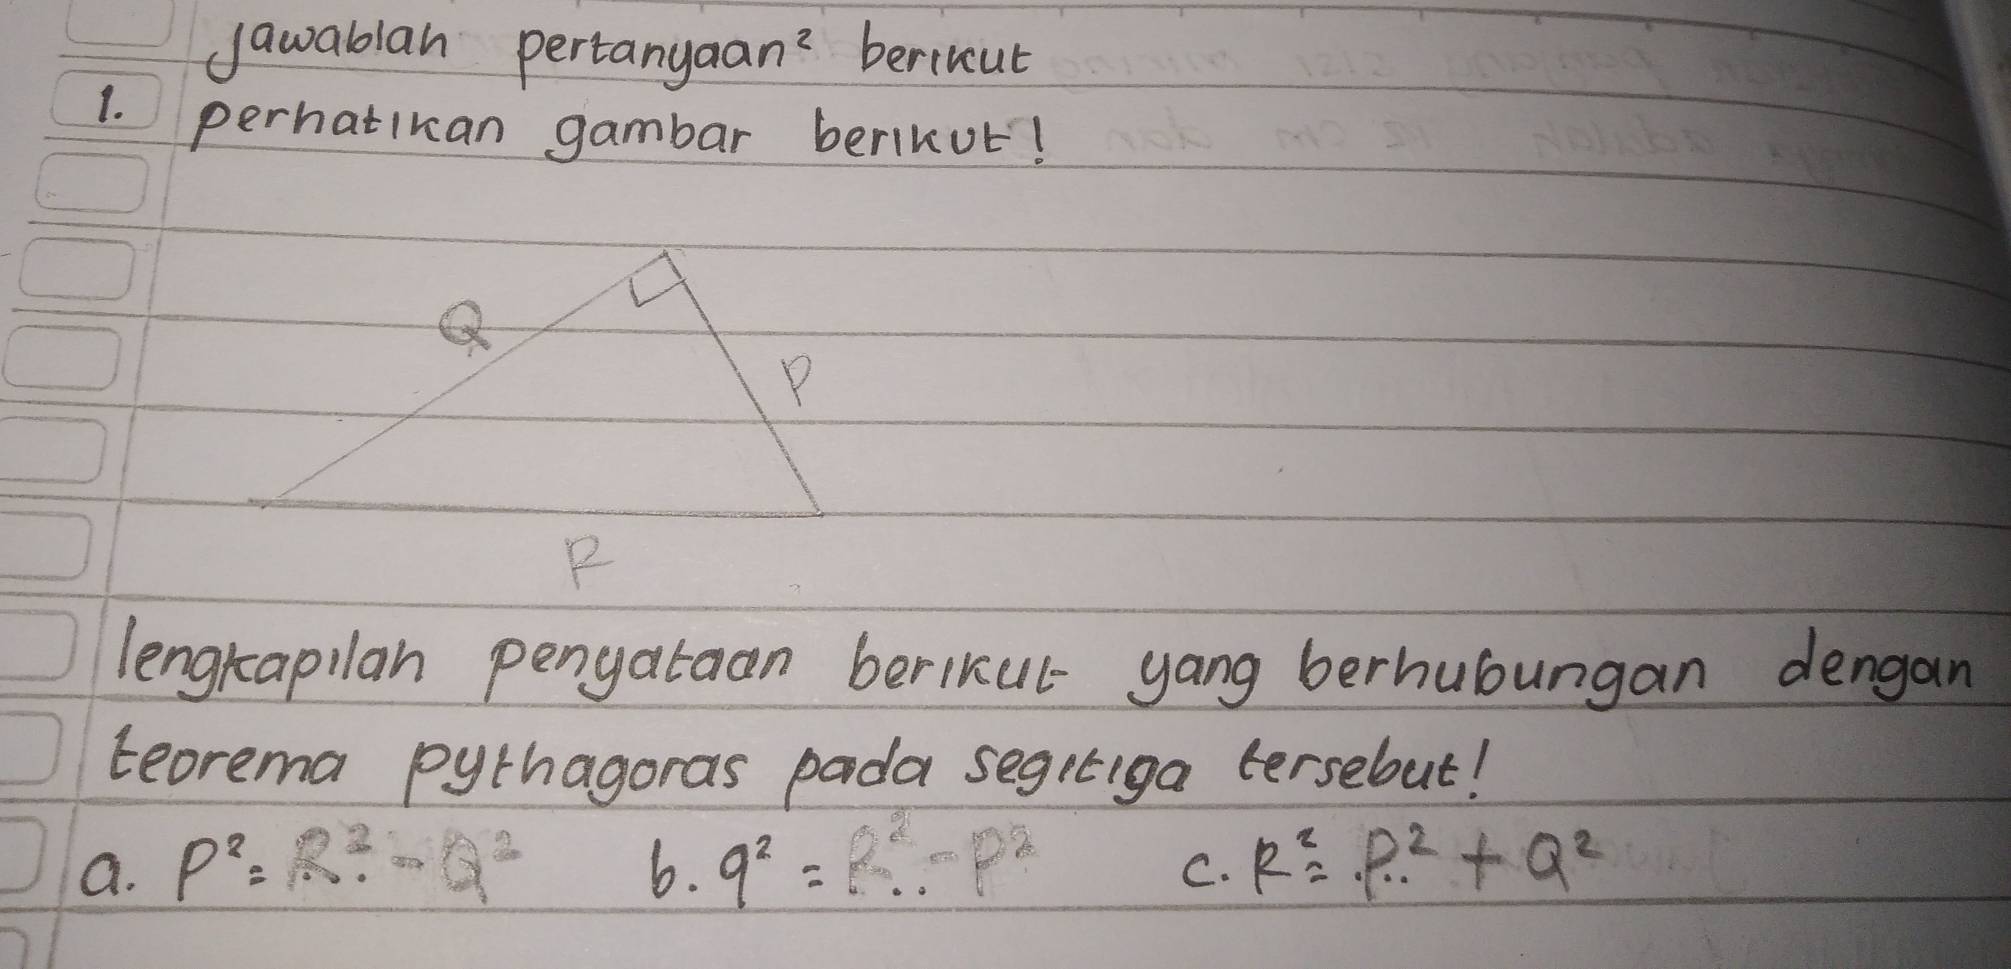 jawablah pertanyaan² berikut
1. perhatikan gambar berikut!
Q
P
R
lengkapilah penyataan berikut yang berhubungan dengan
teorema pythagoras pada segitiga tersebut!
a. P² = R² - Q² b. q² = R² - P² c. R² = P² + Q²